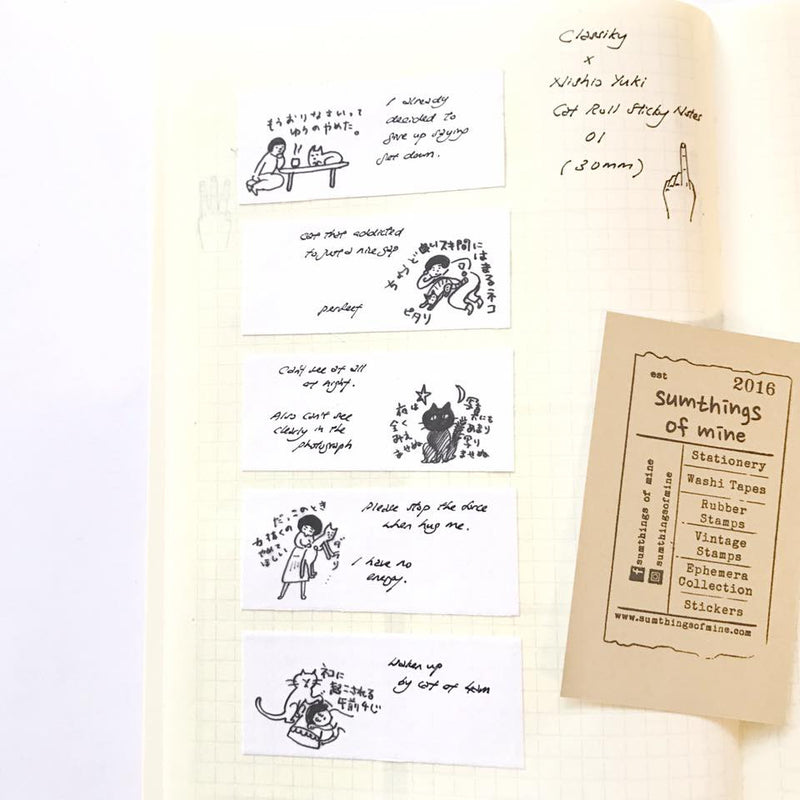 Classiky
x
Nishio Yuki
Cat Roll Sticky Notes
01
(30mm)
もうおりなさいって
ゆうのやめた。
I already
decided to
give up saying
get down.
cat that addicted
to just a nice gap
perfect
ちょうど良いスキ間に
はまるネコ
ピタリ
Can't see at all
at night.
Also can't see
clearly in the
photograph
夜は
全く
みえ
ませぬ
写真にも
あまり
写り
ませぬ
だっこのとき
力抜くの
やめて
ほしい
ダラリ
Please stop the force
when hug me.
I have no
energy.
ネコに
起こされる
午前4じ
Waken up
by cat at 4am
est 2016
sumthings
of mine
sumthings of mine
sumthingsofmine
Stationery
Washi Tapes
Rubber
Stamps
Vintage
Stamps
Ephemera
Collection
Stickers
www.sumthingsofmine.com